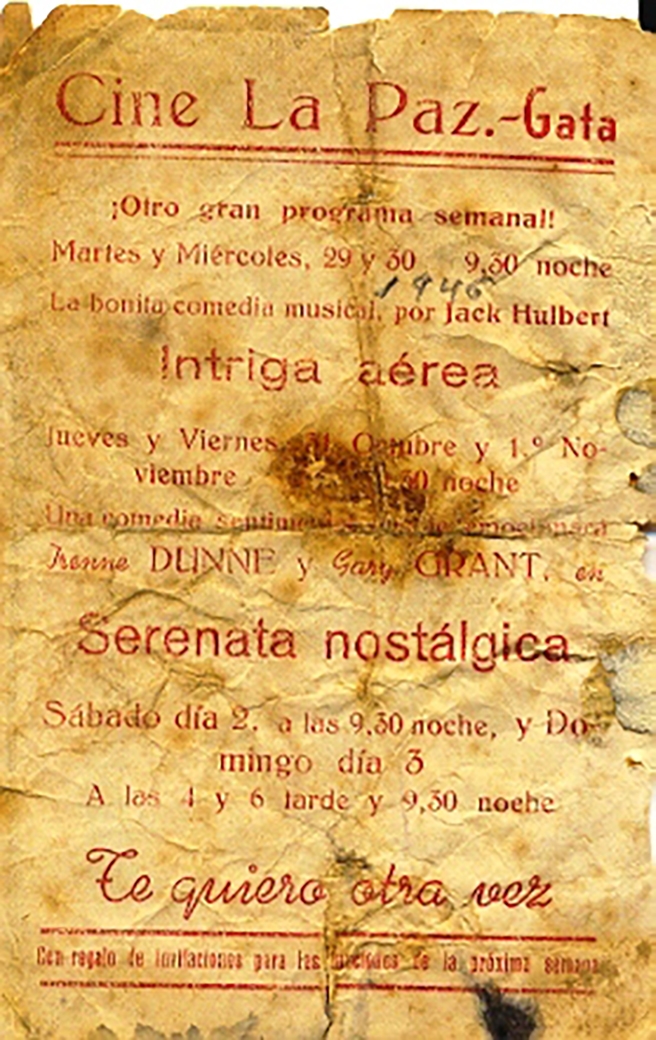 Cine La Paz.-Gata
¡Otro gran programa semanal!
Martes y Miércoles, 29 y 30 9,30 noche
1946
La bonita comedia musical, por Jack Hulbert
Intriga aérea
Jueves y Viernes, 31 Octubre y 1.º No-
viembre 9,30 noche
Una comedia
Irenne DUNNE y Gary GRANT, en
Serenata nostálgica
Sábado día 2, a las 9,30 noche, y Do-
mingo día 3
A las 4 y 6 tarde y 9,30 noche
Te quiero otra vez
Con regalo de invitaciones para las de la próxima semana